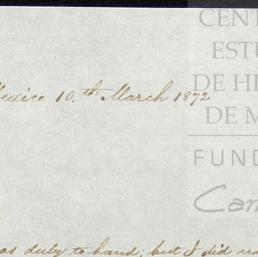 CENT
ESTU
DE HI
DE M
FUND
Car
Mexico 10.th March 1872
as duly to hand, but I did no